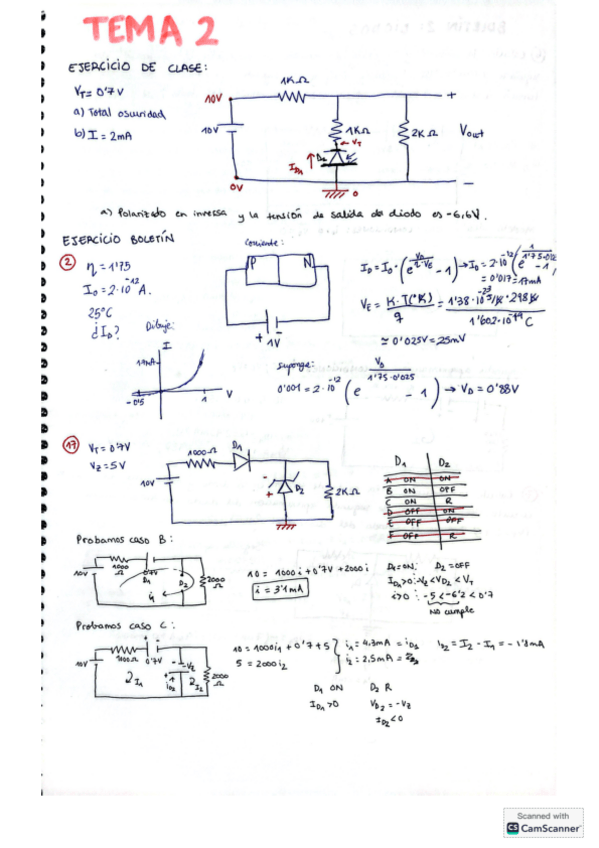 TEMA 2
EJERCICIO DE CLASE:
V_T = 0'7V
a) Total oscuridad
b) I = 2mA
10V
1KΩ
+
10V
1KΩ
V_T
2KΩ
Vout
D_1
I_D1
0V
0
-
a) Polarizado en inversa y la tensión de salida de diodo es -6,6V.
EJERCICIO BOLETÍN
2
η = 1'75
I_0 = 2·10^-12 A.
25°C
¿I_D?
Corriente:
P N
+ -
1V
I_D = I_0 · (e^(V_D/(η·V_E)) - 1) → I_D = 2·10^-12 (e^(1/(1'75·0'025)) - 1)
= 0'017 = 17mA
V_E = K·T(°K)/q = 1'38·10^-23 J/K · 298K / 1'602·10^-19 C
≃ 0'025V = 25mV
Dibuje:
I
V
-0'5
1
Suponga:
0'001 = 2·10^-12 (e^(V_D/(1'75·0'025)) - 1) → V_D = 0'88V
17
V_T = 0'7V
V_Z = 5V
10V
1000Ω
D_1
-
+
D_2
2KΩ
D_1 D_2
A ON ON
B ON OFF
C ON R
D OFF ON
E OFF OFF
F OFF R
Probamos caso B:
10V
1000Ω
D_1
D_2
2000Ω
10 = 1000i + 0'7V + 2000i
i = 3'1mA
D_1 = ON; D_2 = OFF
I_D1 > 0; -V_Z < V_D2 < V_T
i > 0; -5 < -6'2 < 0'7
NO cumple
Probamos caso C:
10V
1000Ω
0'7V
-V_Z
i_D2
I_1
I_2
2000Ω
10 = 1000i_1 + 0'7 + 5
5 = 2000i_2
i_1 = 4.3mA = i_D1
i_2 = 2.5mA
I_D2 = I_2 - I_1 = -1'8mA
D_1 ON D_2 R
I_D1 > 0 V_D2 = -V_Z
I_D2 < 0
Scanned with
CS CamScanner